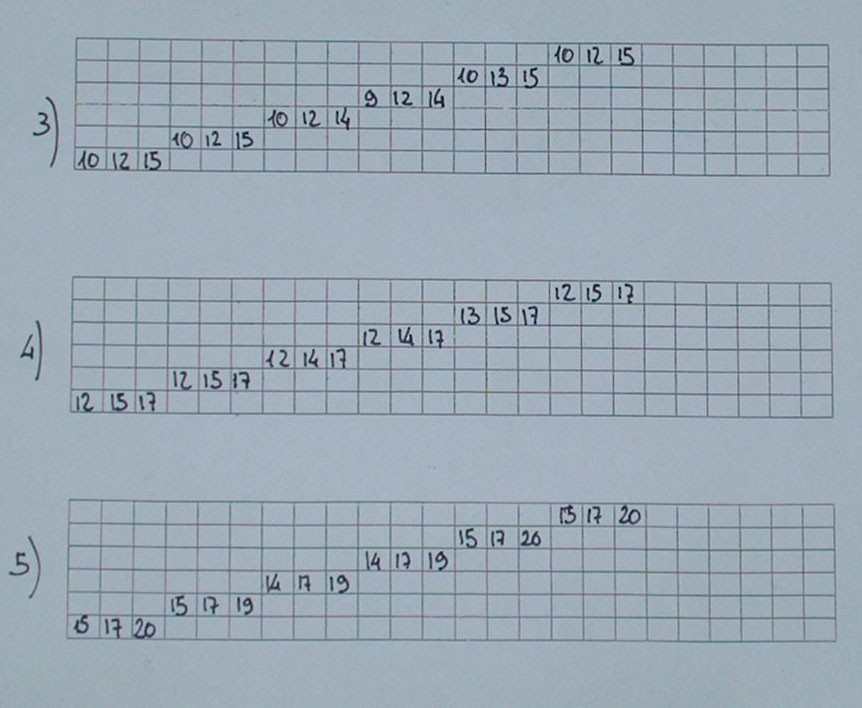 3)
10 12 15
10 13 15
9 12 14
10 12 14
10 12 15
10 12 15
4)
12 15 17
13 15 17
12 14 17
12 14 17
12 15 17
12 15 17
5)
15 17 20
15 17 20
14 17 19
14 17 19
15 17 19
15 17 20